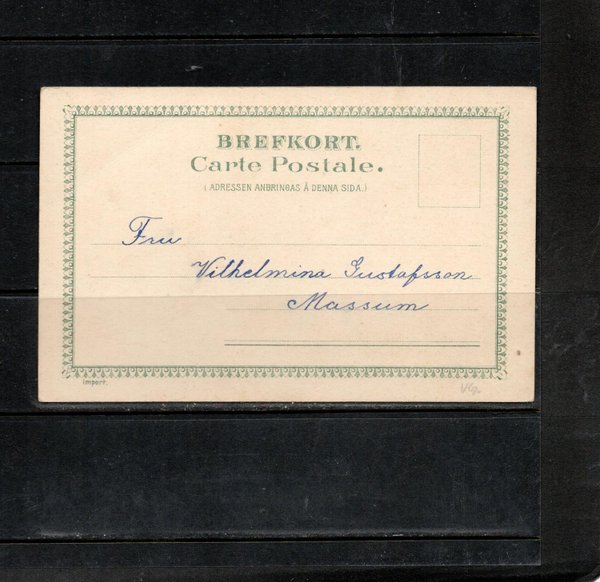 BREFKORT.
Carte Postale.
(ADRESSEN ANBRINGAS Å DENNA SIDA.)
Fru
Vilhelmina Gustafsson
Massum
Import.